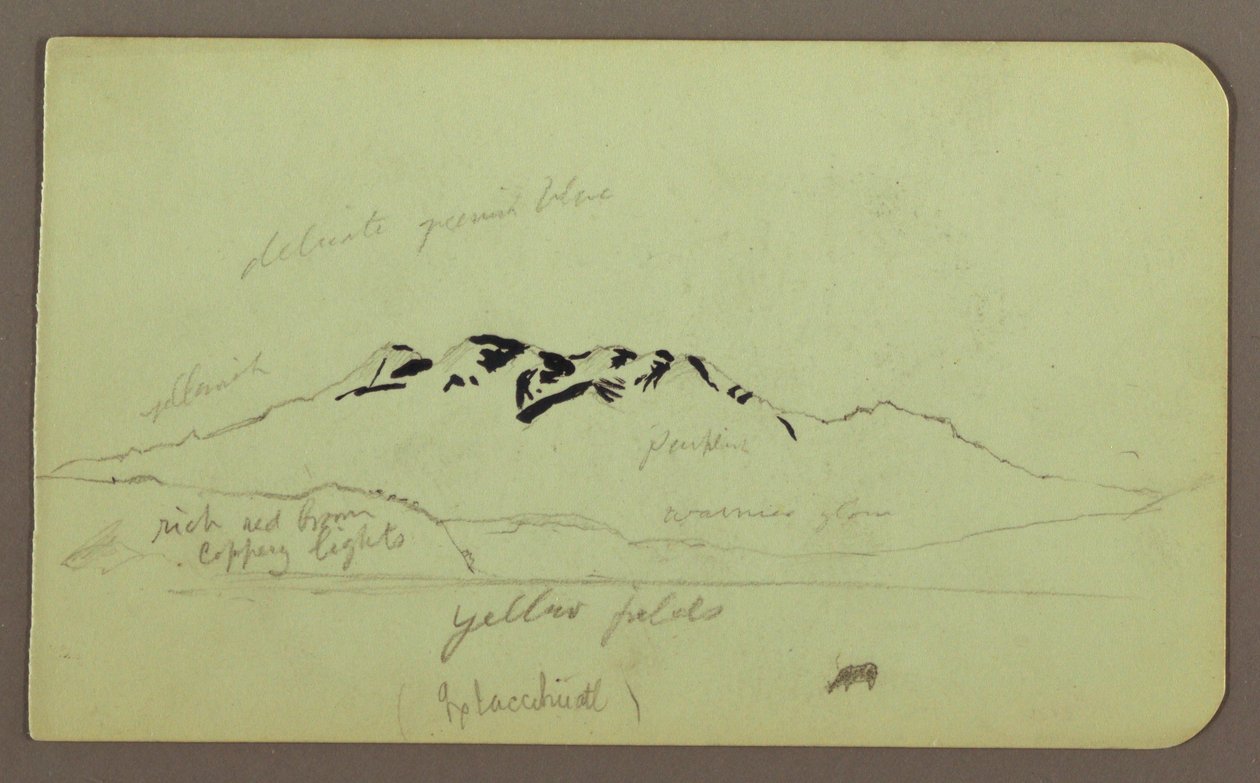 delicate greenish blue
yellowish
purplish
warmer glow
rich red brown
coppery lights
yellow fields
(Ixtaccihuatl)